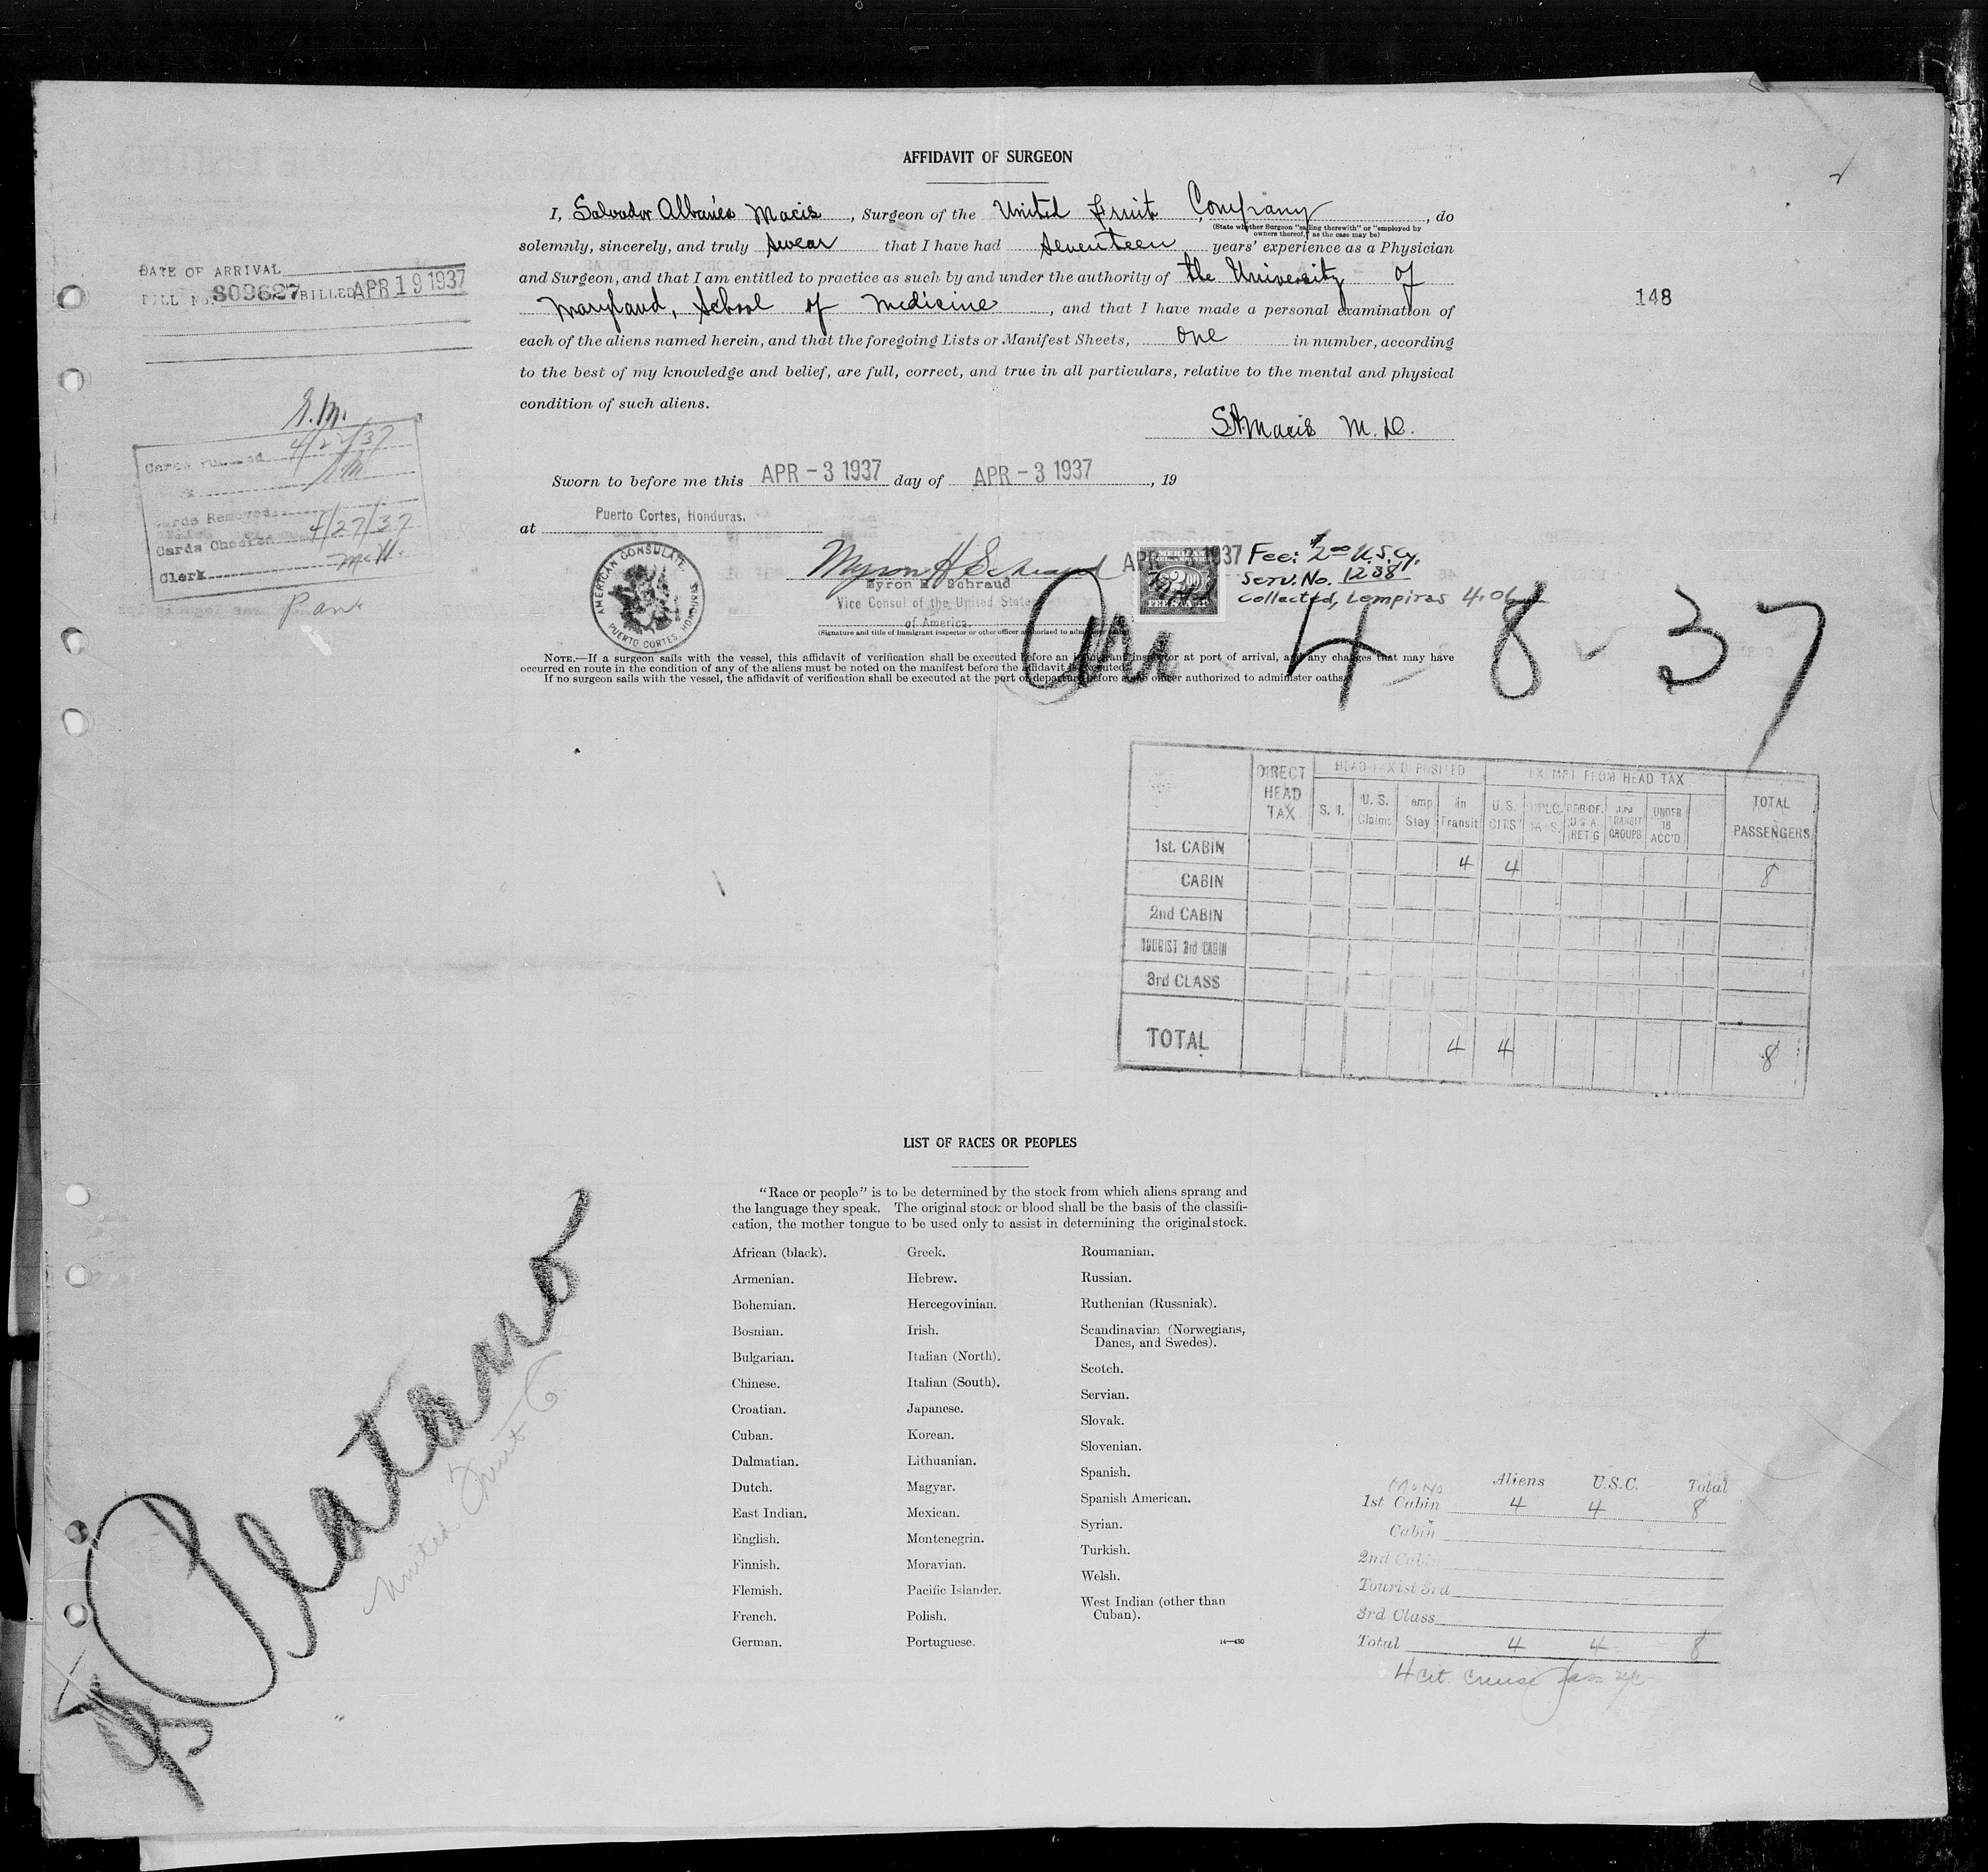 AFFIDAVIT OF SURGEON
I, Salvador Albanés Macis, Surgeon of the United Fruit Company, do
(State whether Surgeon "sailing therewith" or "employed by
owners thereof," as the case may be)
solemnly, sincerely, and truly swear that I have had seventeen years' experience as a Physician
and Surgeon, and that I am entitled to practice as such by and under the authority of the University of
Maryland, School of Medicine, and that I have made a personal examination of
each of the aliens named herein, and that the foregoing Lists or Manifest Sheets, one in number, according
to the best of my knowledge and belief, are full, correct, and true in all particulars, relative to the mental and physical
condition of such aliens.
SAMacis M.D.
DATE OF ARRIVAL
BILL No. 809627 BILLED APR 19 1937
148
4/27/37
Cards Removed
Cards Checked 4/27/37
Clerk McW.
Sworn to before me this APR -3 1937 day of APR -3 1937, 19
at Puerto Cortes, Honduras.
AMERICAN CONSULATE.
PUERTO CORTES, HONDURAS
Myron H Schraud
Myron H. Schraud
Vice Consul of the United States
of America.
(Signature and title of immigrant inspector or other officer authorized to administer oaths)
2.00
FEE STAMP
Fee: $2.00 U.S.Cy.
Serv. No. 1238
Collected, Lempiras 4.06
Arr 4 - 8 - 37
NOTE.—If a surgeon sails with the vessel, this affidavit of verification shall be executed before an immigrant inspector at port of arrival, and any changes that may have
occurred en route in the condition of any of the aliens must be noted on the manifest before the affidavit is executed.
If no surgeon sails with the vessel, the affidavit of verification shall be executed at the port of departure before some officer authorized to administer oaths.
DIRECT HEAD TAX
HEAD TAX DEPOSITED
EXEMPT FROM HEAD TAX
TOTAL PASSENGERS
S. I. U. S. Claims Temp Stay In Transit U. S. CITS DIPLO. UNDER 16 ACC'D
1st. CABIN 4 4 8
CABIN
2nd CABIN
TOURIST 3rd CABIN
3rd CLASS
TOTAL 4 4 8
LIST OF RACES OR PEOPLES
"Race or people" is to be determined by the stock from which aliens sprang and
the language they speak. The original stock or blood shall be the basis of the classifi-
cation, the mother tongue to be used only to assist in determining the original stock.
African (black).
Armenian.
Bohemian.
Bosnian.
Bulgarian.
Chinese.
Croatian.
Cuban.
Dalmatian.
Dutch.
East Indian.
English.
Finnish.
Flemish.
French.
German.
Greek.
Hebrew.
Hercegovinian.
Irish.
Italian (North).
Italian (South).
Japanese.
Korean.
Lithuanian.
Magyar.
Mexican.
Montenegrin.
Moravian.
Pacific Islander.
Polish.
Portuguese.
Roumanian.
Russian.
Ruthenian (Russniak).
Scandinavian (Norwegians,
Danes, and Swedes).
Scotch.
Servian.
Slovak.
Slovenian.
Spanish.
Spanish American.
Syrian.
Turkish.
Welsh.
West Indian (other than
Cuban).
14—430
SS Platano
United Fruit Co
Aliens U.S.C. Total
1st Cabin 4 4 8
Cabin
2nd Cabin
Tourist 3rd
3rd Class
Total 4 4 8
4 cit. cruise pass